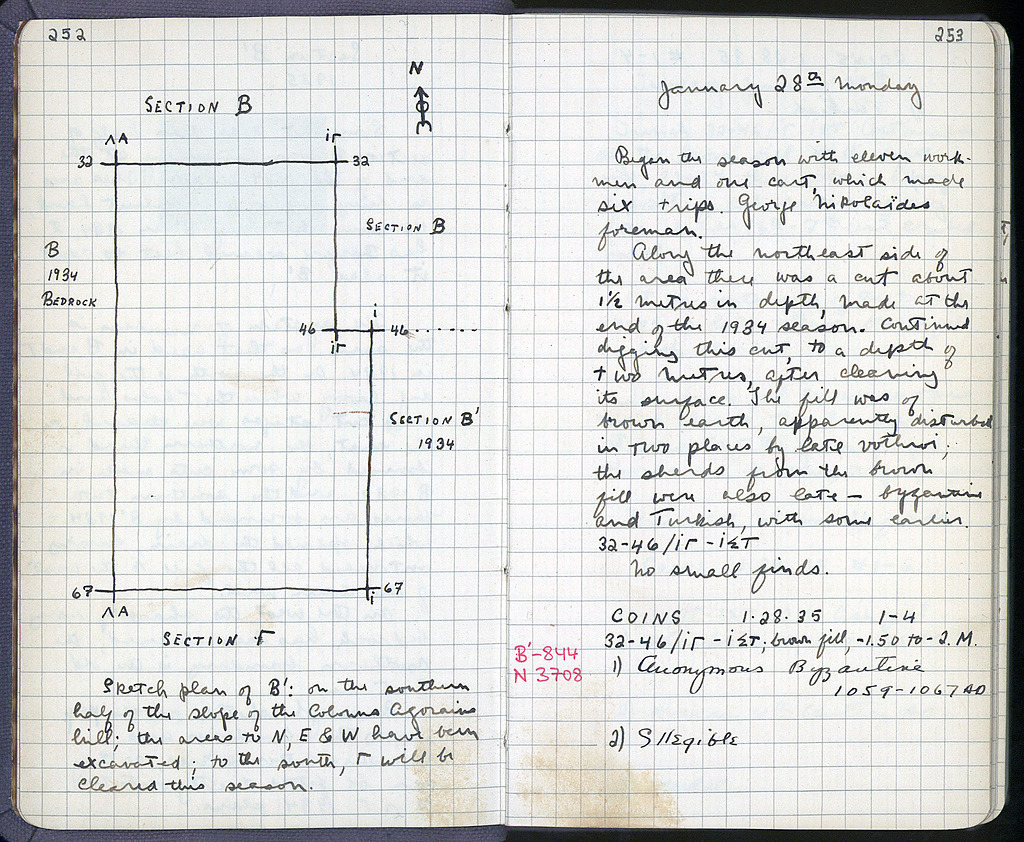 252
N
SECTION B
ΛΑ
ιΓ
32
32
SECTION B
B
1934
BEDROCK
46
46
ι
ιΓ
SECTION B'
1934
67
67
ΛΑ
ι
SECTION Γ
Sketch plan of B': on the southern
half of the slope of the Colonus Agoraios
hill; the areas to N, E & W have been
excavated; to the south, Γ will be
cleared this season.
253
January 28th Monday
Began the season with eleven work-
men and one cart, which made
six trips. George Nikolaïdes
foreman.
Along the northeast side of
the area there was a cut about
1½ metres in depth, made at the
end of the 1934 season. Continued
digging this cut, to a depth of
two metres, after cleaning
its surface. The fill was of
brown earth, apparently disturbed
in two places by late vothroi;
the sherds from the brown
fill were also late – byzantine
and Turkish, with some earlier.
32-46/ιΓ - ιΣΤ
No small finds.
COINS 1·28·35 1-4
32-46/ιΓ - ιΣΤ; brown fill, -1.50 to -2.M.
B'-844
N 3708
1) Anonymous Byzantine
1059-1067 AD
2) Illegible